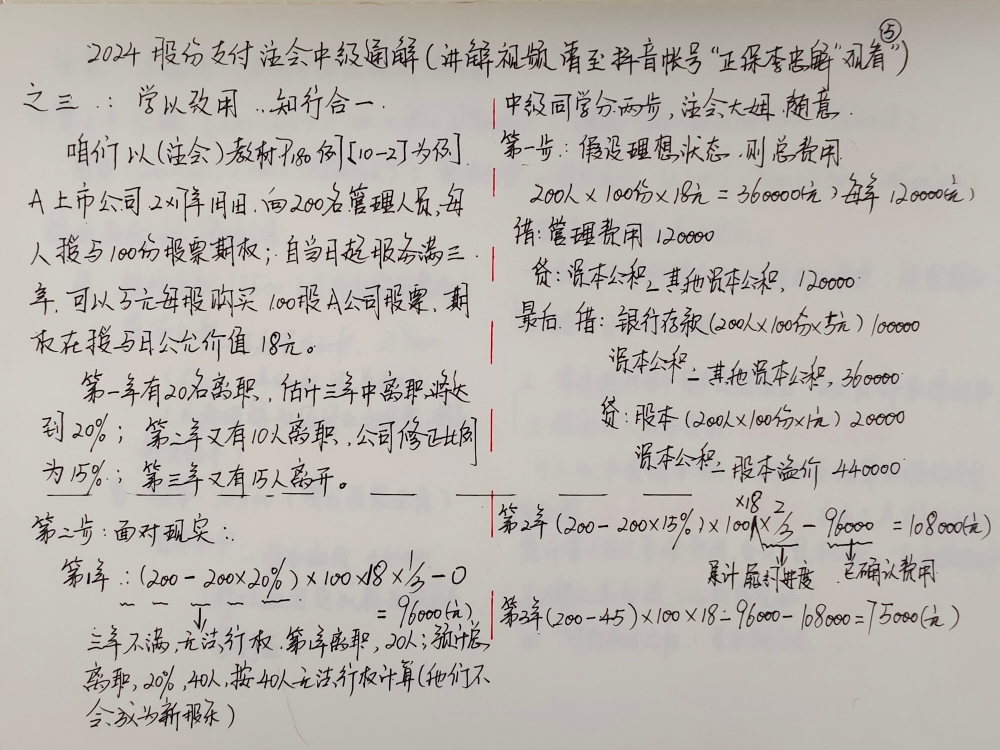 ⑤
2024股份支付注会中级通解(讲解视频请至抖音帐号"正保李忠魁"观看")
之三：学以致用，知行合一.
咱们以(注会)教材P180例[10-2]为例.
A上市公司2X1年1月1日，向200名管理人员，每
人授与100份股票期权；自当日起服务满三
年，可以5元每股购买100股A公司股票，期
权在授与日公允价值18元。
第一年有20名离职，估计三年中离职将达
到20%；第二年又有10人离职，公司修正比例
为15%；第三年又有15人离开。
第二步：面对现实：
第1年：(200-200×20%)×100×18×1/3-0
=96000(元)
三年不满，无法行权.第1年离职，20人；预计总
离职，20%，40人，按40人无法行权计算(他们不
会成为新股东)
中级同学分两步，注会大姐，随意.
第一步：假设理想状态，则总费用
200人×100份×18元=360000(元)每年120000(元)
借：管理费用 120000
贷：资本公积-其他资本公积，120000
最后，借：银行存款(200人×100份×5元)100000
资本公积-其他资本公积，360000
贷：股本(200人×100份×1元)20000
资本公积-股本溢价 440000
第2年(200-200×15%)×100×18×2/3-96000=108000(元)
累计能封进度 已确认费用
第3年(200-45)×100×18-96000-108000=75000(元)